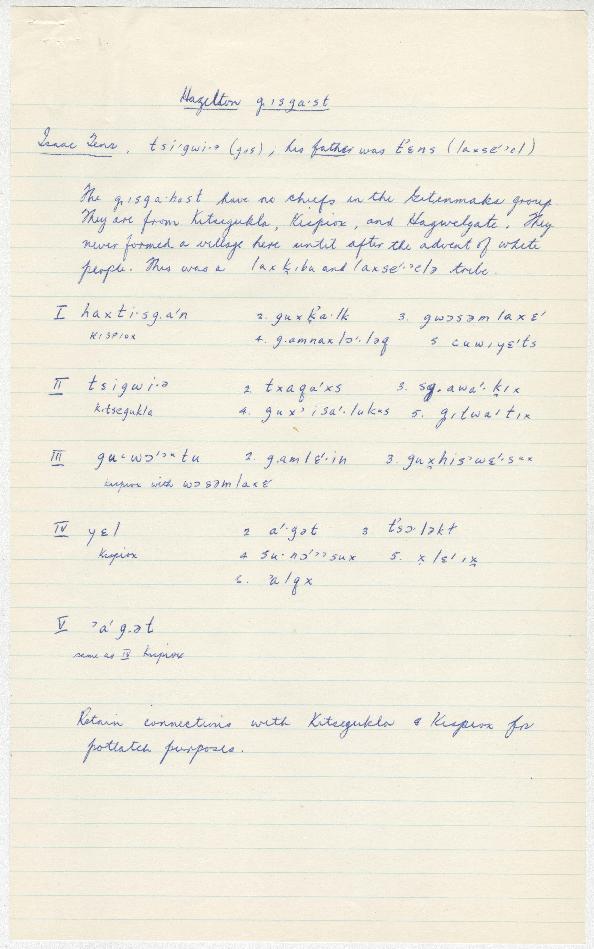 Hazelton g.isga·st
Isaac Tens, tsi·'gwi·ə (gəs), his father was t'ɛns (laxsɛ'·ɔl)
The g.isga·host have no chiefs in the Gitenmaks group
They are from Kitsegukla, Kispiox, and Hagwelgate. They
never formed a village here until after the advent of white
people. This was a lax ḵ.ibu and laxse'·ɔlə tribe.
I haxti·sg.a'n 2. guxḵ'a·lk 3. gwɔsəm laxɛ'
KISPIOX 4. g.amnaxlɔ'·ləq 5 cuwiyɛ'ts
II tsigwi·ə 2. txaqa'xs 3. sg.awa'·ḵix
Kitsegukla 4. gux'isa'·lukʷs 5. g.itwa'tix
III 2. g.amlɛ'·in 3. gux̱his'wɛ'·sʷˣ
Kispiox with wɔsəmlaxɛ'
IV yɛl 2 a'·gət 3 t'sɔ'ləkt
Kispiox 4 su·nɔ'ˀˀsux 5. x̱lɛ'·ix̱
6. 'alqx
V 'a'g.ət
same as IV Kispiox
Retain connections with Kitsegukla & Kispiox for
potlatch purposes.